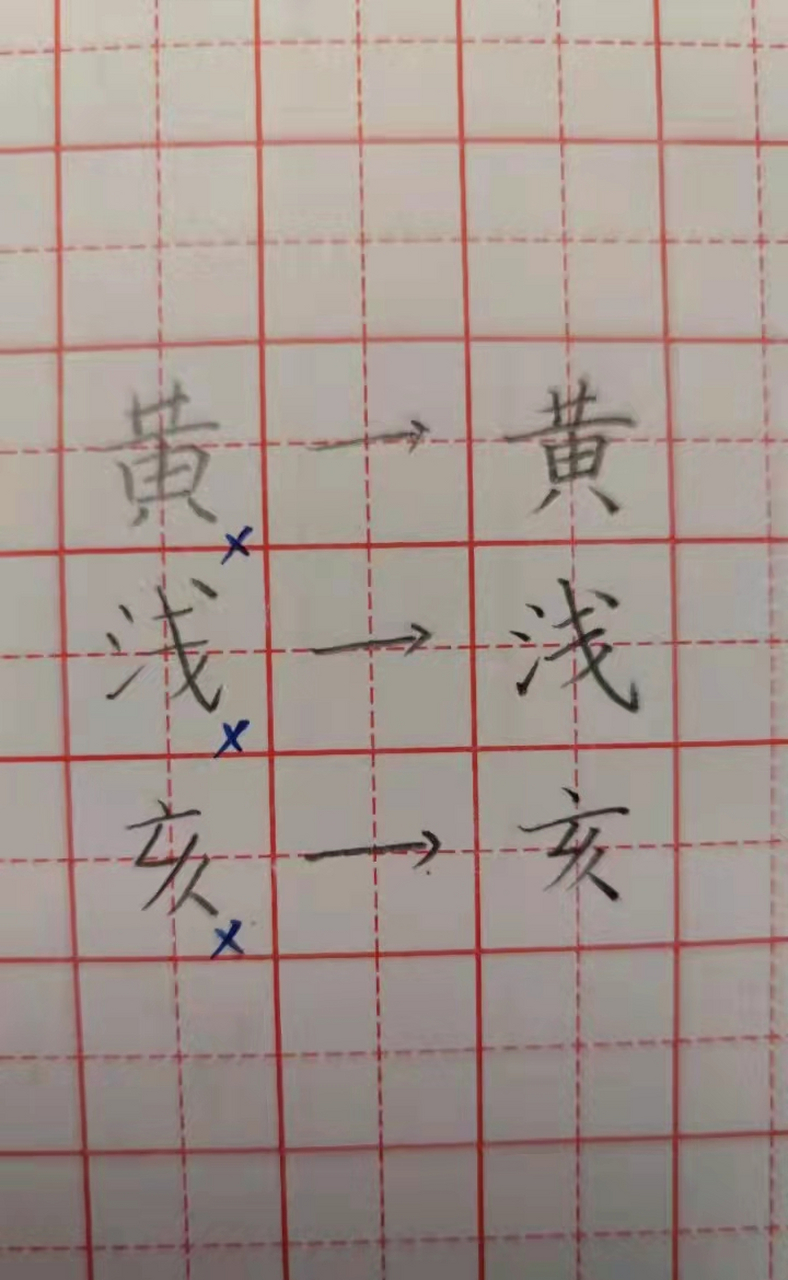 黄 → 黄
x
浅 → 浅
x
亥 → 亥
x